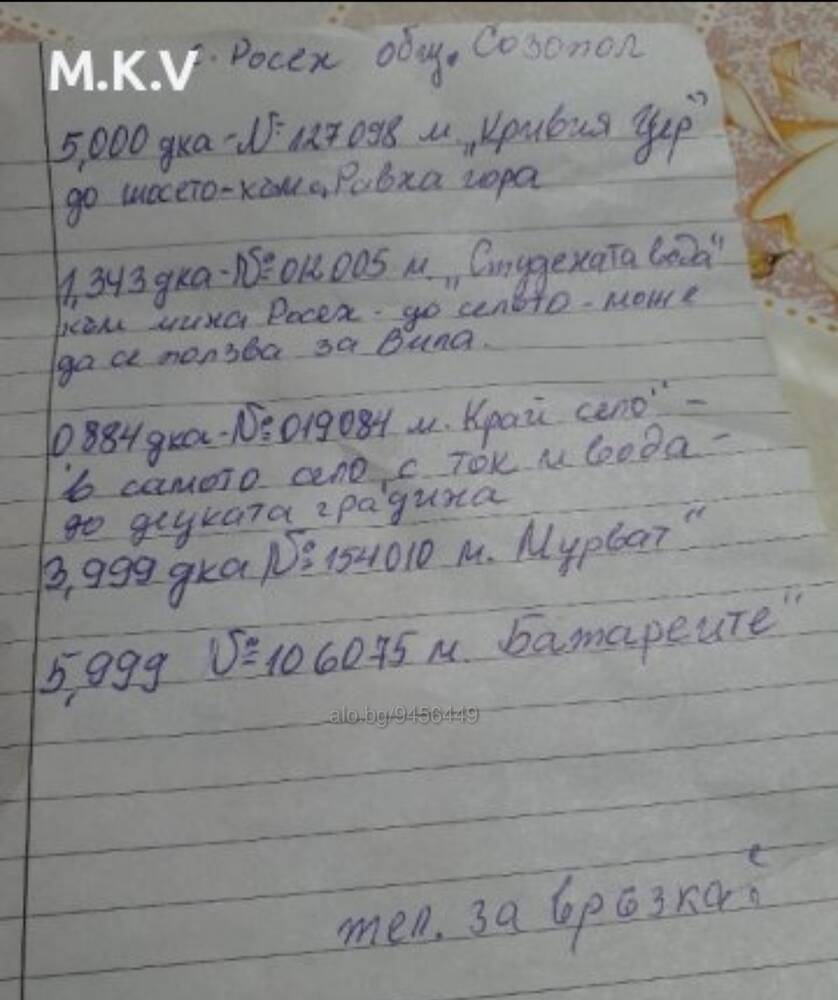 M.K.V
с. Росен общ. Созопол
5,000 дка - № 127098 м. „Кривия Цер"
до шосето - към с. Равна гора
1,343 дка - № 012005 м. „Студената вода"
към мина Росен - до селото - може
да се ползва за вила.
0884 дка - № 019084 м. Край село" -
в самото село, с ток и вода -
до децката градина
3,999 дка № 154010 м. Мурват"
5,999 № 106075 м. Батареите"
alo.bg/9456449
тел. за връзка: